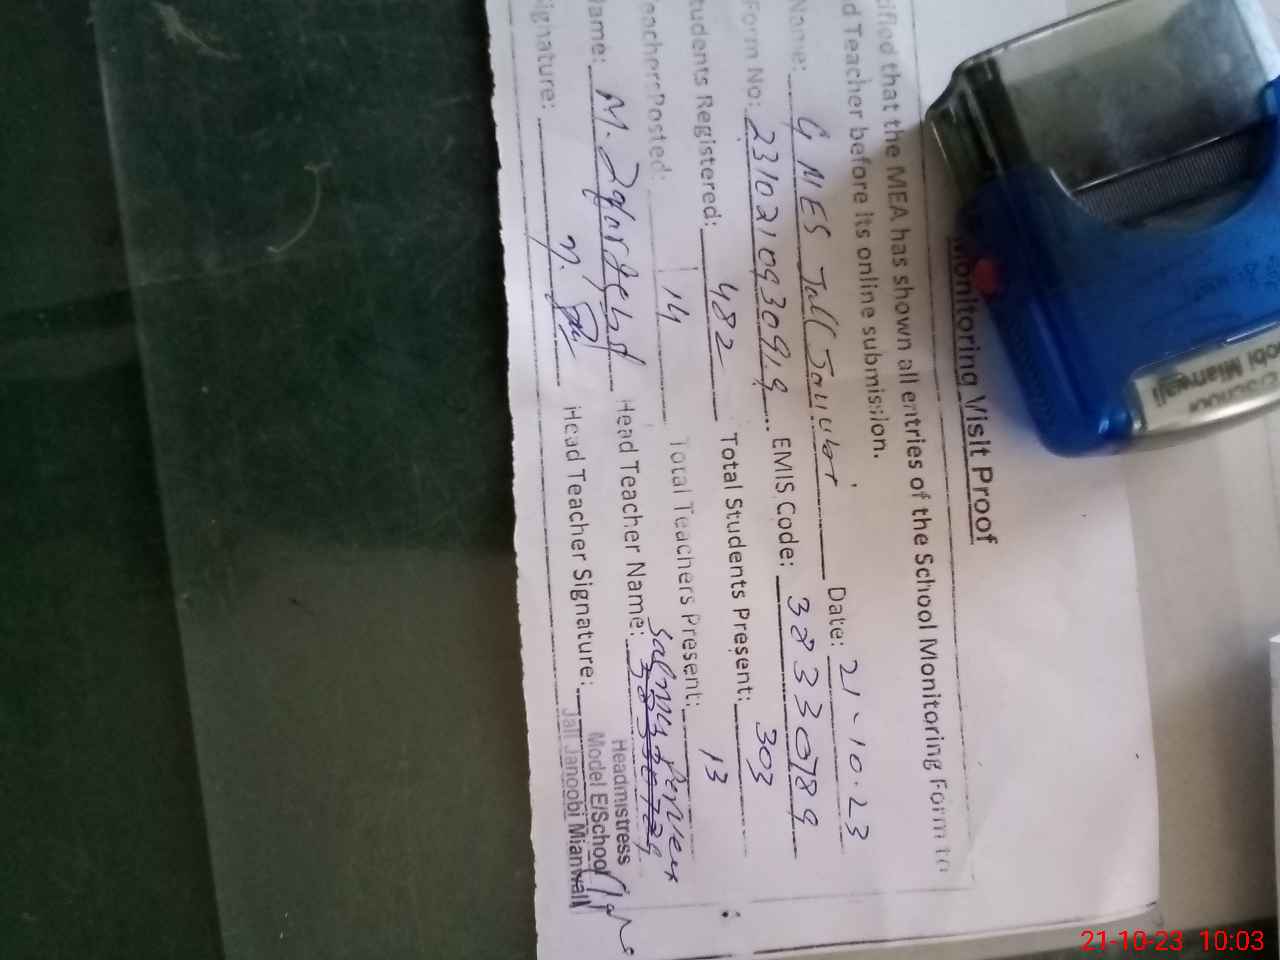 Monitoring Visit Proof
ified that the MEA has shown all entries of the School Monitoring Form to
d Teacher before its online submission.
Name: GMES Jall Date: 21-10-23
Form No: EMIS Code: 38330789
tudents Registered: 482 Total Students Present: 303
eacher Posted: 14 Total Teachers Present: 13
ame: M. Head Teacher Name: Salma Perveen
ignature: Head Teacher Signature:
Headmistress
Model E/School
Jall Janoobi Mianwali
obi Mianwali
21-10-23 10:03